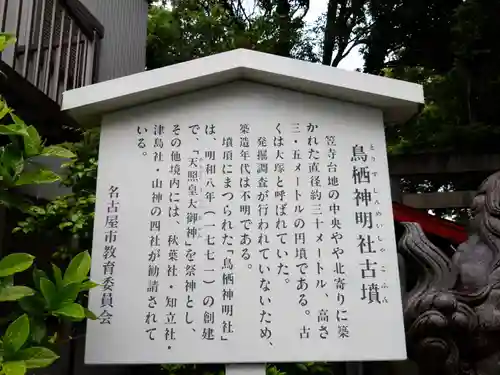 鳥栖神明社古墳
とりすしんめいしゃこふん
笠寺台地の中央やや北寄りに築
かれた直径約三十メートル、高さ
三・五メートルの円墳である。古
くは大塚と呼ばれていた。
発掘調査が行われていないため、
築造年代は不明である。
墳頂にまつられた「鳥栖神明社」
は、明和八年（一七七一）の創建
で、「天照皇大御神」を祭神とし、
その他境内には、秋葉社・知立社・
津島社・山神の四社が勧請されて
いる。
名古屋市教育委員会